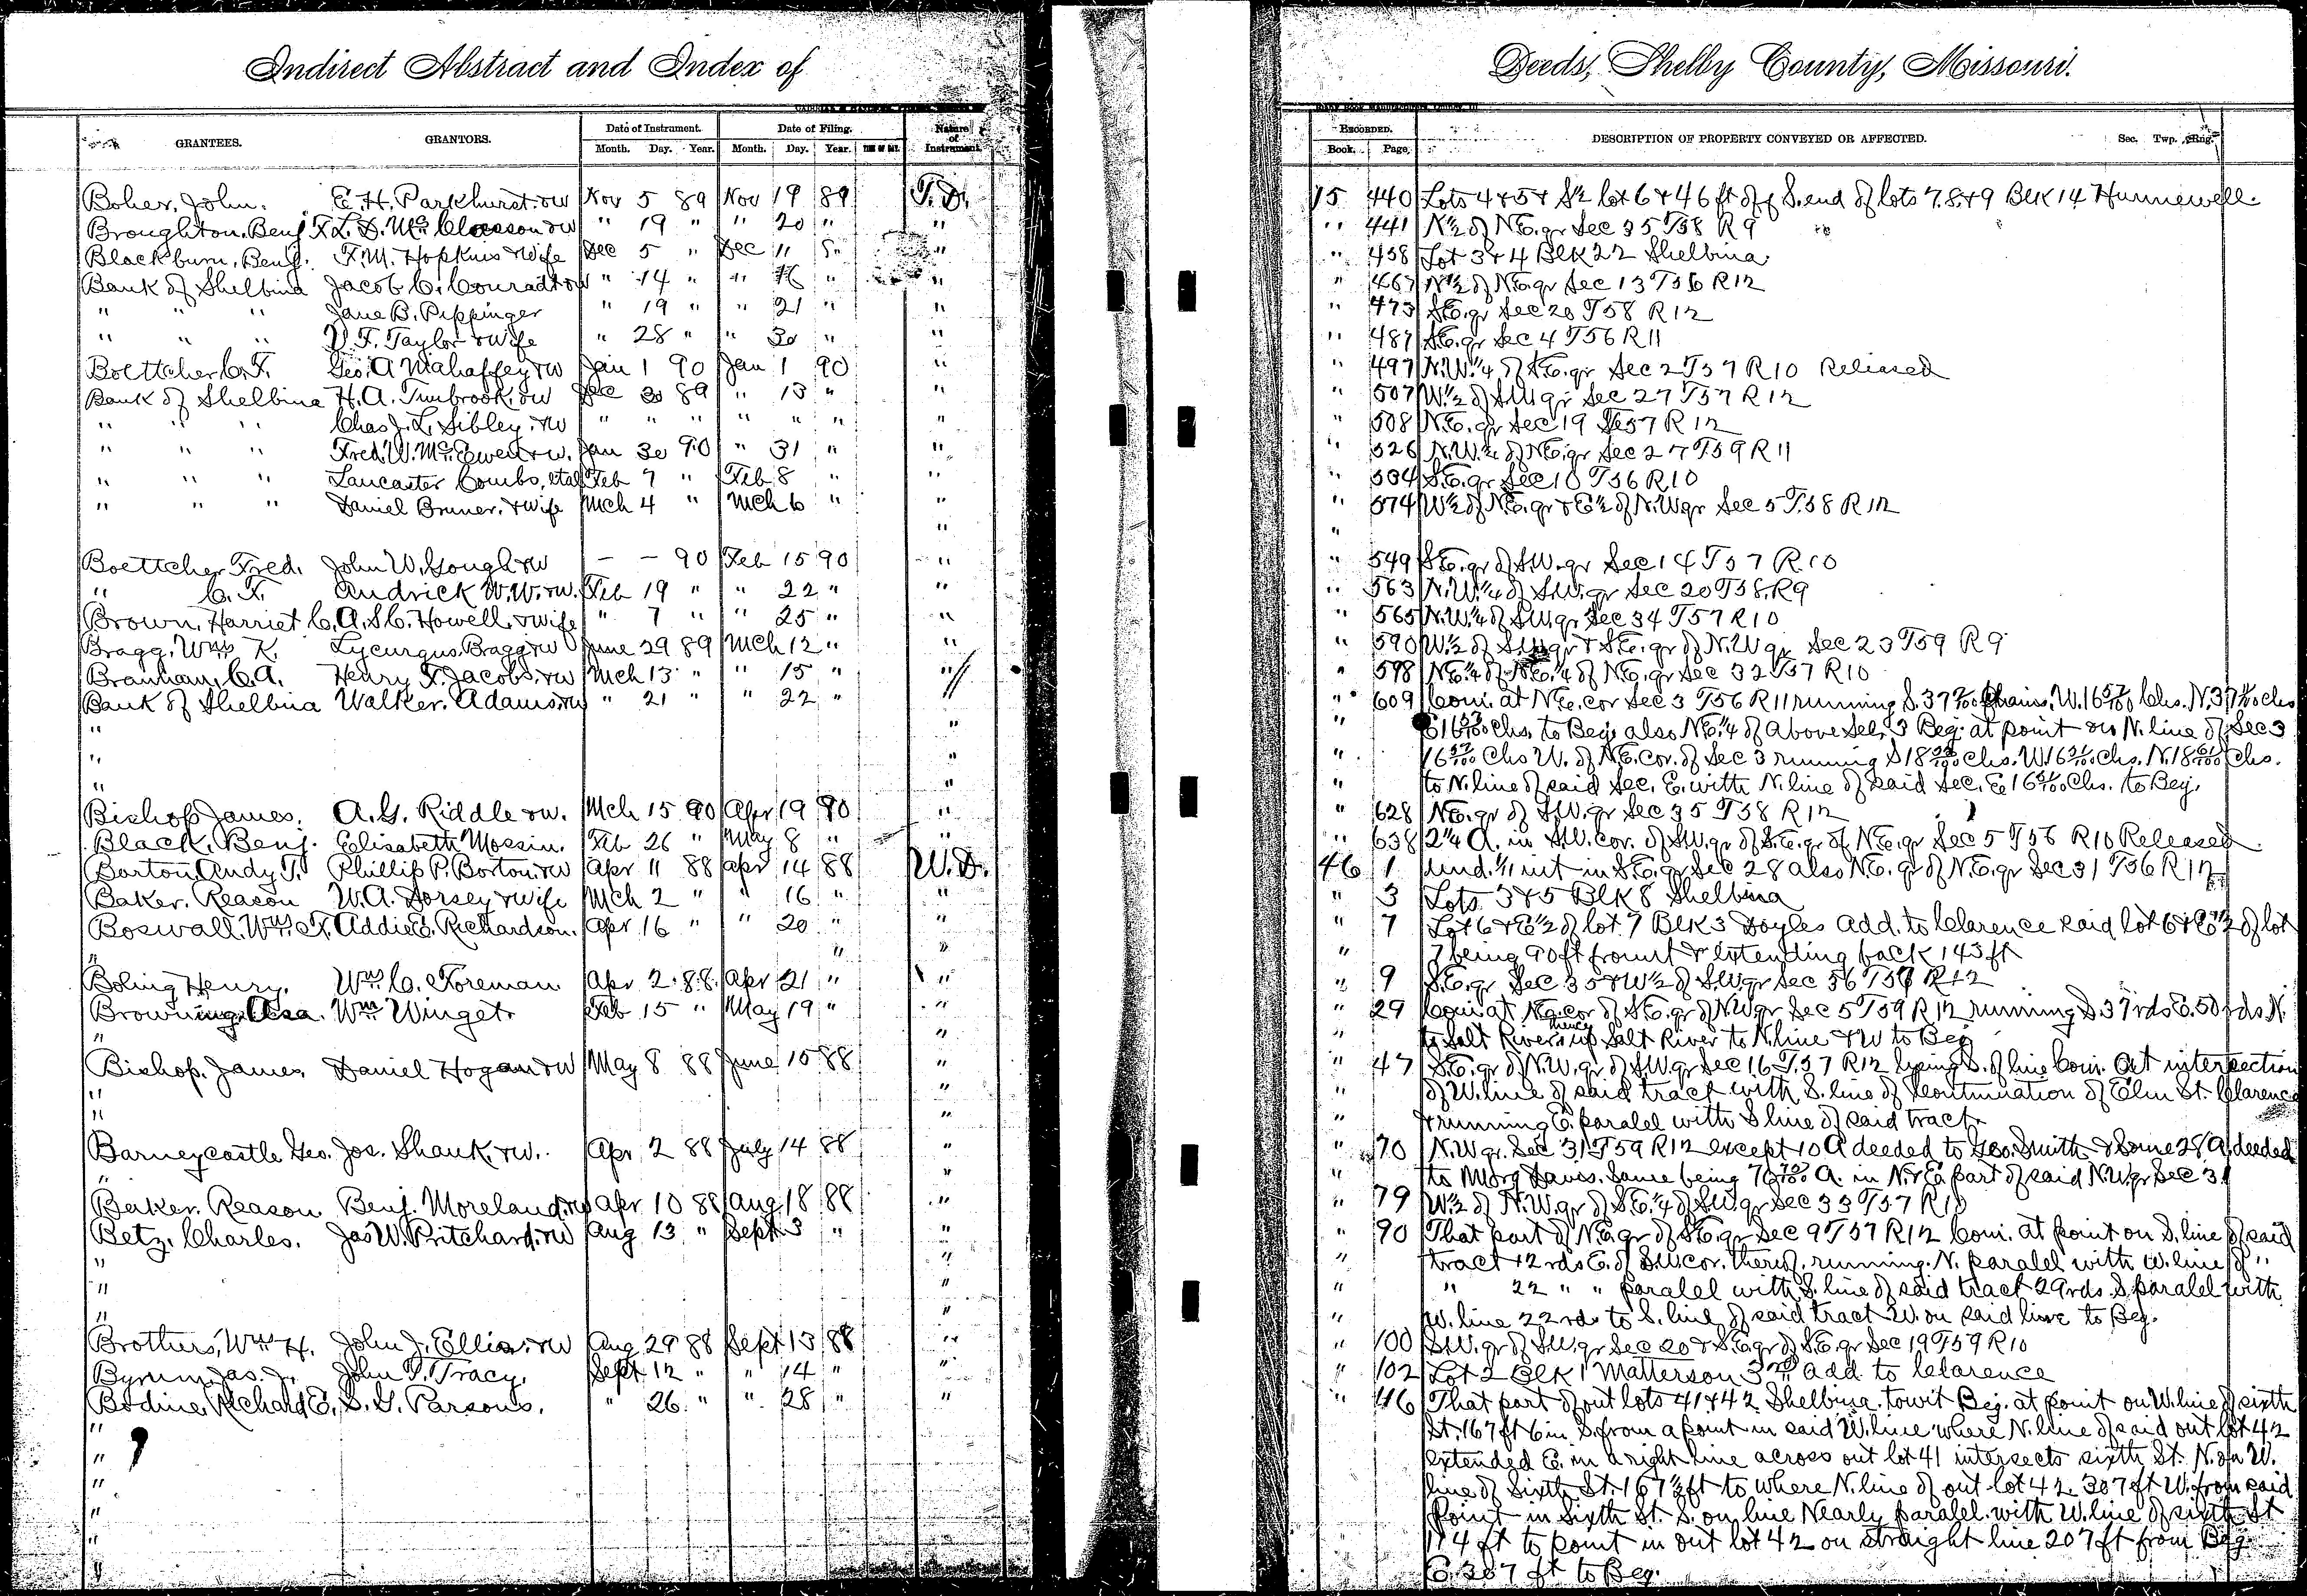 Indirect Abstract and Index of
Deeds, Shelby County, Missouri.
GRANTEES. GRANTORS. Date of Instrument. Date of Filing. Nature of Instrument.
Month. Day. Year. Month. Day. Year. TIME OF DAY.
RECORDED. DESCRIPTION OF PROPERTY CONVEYED OR AFFECTED. Sec. Twp. Rng.
Book. Page.
Boher, John. E. H. Parkhurst & w Nov 5 89 Nov 19 89 T. D. 15 440 Lots 4 & 5 & S½ lot 6 & 46 ft of S. end of lots 7. 8. & 9 Blk 14 Hunnewell.
Broughton, Benj F. L. D. McClosson & w " 19 " " 20 " " " 441 N½ of N.E. qr Sec 35 T58 R9
Blackburn, Benj. F. M. Hopkins & Wife Dec 5 " Dec 11 " " 458 Lot 3 & 4 Blk 22 Shelbina.
Bank of Shelbina Jacob C. Conradt & w " 14 " " 16 " " " 467 N½ of N.E. qr Sec 13 T56 R12
" " " Jane B. Pippinger " 19 " " 21 " " " 473 S.E. qr Sec 20 T58 R12
" " " V. F. Taylor & Wife " 28 " " 30 " " " 487 S.E. qr Sec 4 T56 R11
Boettcher C. F. Geo. A Mahaffey & w Jan 1 90 Jan 1 90 " " 497 N.W.¼ of S.E. qr Sec 2 T57 R10 Released
Bank of Shelbina H. A. Timbrook & w Dec 30 89 " 13 " " " 507 W.½ of S.W. qr Sec 27 T57 R12
" " " Chas J. L. Sibley & w " " " " " " " " 508 N.E. qr Sec 19 T57 R12
" " " Fred. W. McEwen & w. Jan 30 90 " 31 " " " 526 N.W.¼ of N.E. qr Sec 27 T59 R11
" " " Lancaster Combs, etal Feb 7 " Feb 8 " " " 534 S.E. qr Sec 10 T56 R10
" " " Daniel Bruner. & wife Mch 4 " Mch 6 " " " 574 W½ of N.E. qr & E½ of N.W qr Sec 5 T.58 R12
" "
Boettcher Fred. John W. Gough & w — — 90 Feb 15 90 " " 549 S.E. qr of S.W. qr Sec 14 T57 R.10
" C. F. Andrick W. W. & w. Feb 19 " " 22 " " " 563 N.W.¼ of S.W. qr Sec 20 T58. R9
Brown, Harriet C. A. S. C. Howell. & wife " 7 " " 25 " " " 565 N.W.¼ of S.W. qr Sec 34 T57 R10
Bragg, Wm K. Lycurgus Bragg & w June 29 89 Mch 12 " " " 590 W.½ of S.W. qr & S.E. qr of N.W qr Sec 23 T59 R9
Branham, C. A. Henry F. Jacobs & w Mch 13 " " 15 " " " 598 N.E.¼ of N.E.¼ of N.E. qr Sec 32 T57 R10
Bank of Shelbina Walker. Adams & w " 21 " " 22 " " " 609 Com. at N.E. cor Sec 3 T56 R11 running S. 37 Chains, W. 16 57/100 Chs. N. 37 Chs
" " " E 16 57/100 Chs. to Beg. also N.E.¼ of above Sec. 3 Beg. at point on N. line of Sec 3
" " " 16 57/100 Chs W. of N.E. Cor. of Sec 3 running S 18 Chs. W. 16 Chs. N. 18 Chs.
" " to N. line of said Sec. E. with N. line of said Sec. E 16 Chs. to Beg.
Bishop James. A. G. Riddle & w. Mch 15 90 Apr 19 90 " " 628 N.E. qr of S.W. qr Sec 35 T58 R12
Black, Benj. Elisabeth Mossin. Feb 26 " May 8 " " " 638 2¼ A. in S.W. cor. of S.W. qr of S.E. qr of N.E. qr Sec 5 T56 R10 Released
Borton, Andy T. Phillip P. Borton & w Apr 11 88 Apr 14 88 W. D. 46 1 und. 1/11 int in S.E. qr Sec 28 also N.E. qr of N.E. qr Sec 31 T56 R12
Baker. Reason W. A. Dorsey & wife Mch 2 " " 16 " " " 3 Lots 3 & 5 Blk 8 Shelbina
Boswall. Wm. F. Addie E. Richardson. Apr 16 " " 20 " " " 7 Lot 6 & E½ of lot 7 Blk 3 Doyles Add. to Clarence said lot 6 & E½ of lot
" " " 7 being 90 ft frount & extending back 143 ft
Boling Henry. Wm. C. Foreman Apr 2 88 Apr 21 " " " 9 S.E. qr Sec 35 & W½ of S.W. qr Sec 36 T56 R12
Browning. Asa. Wm Winget. Feb 15 " May 19 " " " 29 Com at N.E. cor of S.E. qr of N.W qr Sec 5 T59 R12 running S. 37 rds E. 50 rds N.
" " " to Salt River thence up Salt River to N. line & W to Beg
Bishop. James Daniel Hogan & w May 8 88 June 15 88 " " 47 S.E. qr of N.W. qr of S.W qr Sec 16 T.57 R12 lying S. of line Com. at intersection
" " " of W. line of said tract with S. line of Continuation of Elm St. Clarence
" " " & running E. paralel with S line of said tract
Barneycastle Geo. Jos. Shank & w. Apr 2 88 July 14 88 " " 70 N.W qr. Sec 31 T59 R12 except 10 A deeded to Geo. Smith & Some 28 A deeded
" " " to Morg Davis. Same being 76 A. in N. & E. part of said N.W. qr Sec 31
Baker. Reason Benj. Moreland & w Apr 10 88 Aug 18 88 " " 79 W.½ of N.W. qr of S.E.¼ of S.W. qr Sec 33 T57 R10
Betz. Charles. Jas W. Pritchard & w Aug 13 " Sept 3 " " " 90 That part of N.E. qr of S.E. qr Sec 9 T57 R12 Com. at point on S. line of said
" " " tract 12 rds E. of S.W. cor. therof, running. N. paralel with W. line of "
" " " " 22 " " paralel with S. line of said tract 29 rds. S paralel with
" " " W. line 22 rds to S. line of said tract W. on said line to Beg.
Brothers, Wm H. John J. Ellis & w Aug 29 88 Sept 13 88 " " 100 S.W. qr of S.W. qr Sec 20 & S.E. qr of S.E. qr Sec 19 T59 R10
Byrum Jas. J. John P. Tracy. Sept 12 " " 14 " " " 102 Lot 2 Blk 1 Matterson 3rd add to Clarence
Bodine, Richard E. S. G. Parsons. " 26 " " 28 " " " 46 That part of out lots 41 & 42 Shelbina. towit Beg. at point on W. line of sixth
" St. 167 ft 6 in S. from a point in said W. line where N. line of said out lot 42
" extended E. in a right line across out lot 41 intersects sixth St. N. on W.
" line of Sixth St. 167½ ft to where N. line of out lot 42. 307 ft W. from said
" Point in Sixth St. S. on line Nearly paralel. with W. line of sixth St
" 174 ft to point in out lot 42 on straight line 207 ft from Beg
" E. 307 ft to Beg.